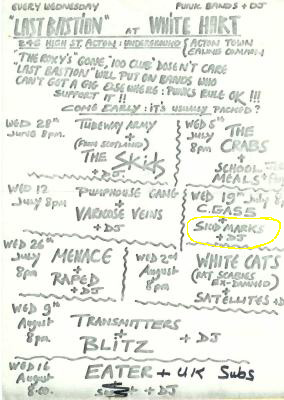 EVERY WEDNESDAY PUNK BANDS + DJ
"LAST BASTION" AT WHITE HART
246 HIGH ST. ACTON: UNDERGROUND (ACTON TOWN
EALING COMMON
"THE ROXY'S" GONE, '100 CLUB' DOSEN'T CARE
"LAST BASTION" WILL PUT ON BANDS WHO
CAN'T GET A GIG ELSEWHERE: PUNKS RULE OK !!!
SUPPORT IT !!
COME EARLY: IT'S USUALLY PACKED?
WED 28th
JUNE 8pm.
TUBEWAY ARMY
+
(FROM SCOTLAND)
THE SKIDS
WED 5th
July
8pm
THE
CRABS
+
SCHOOL
MEALS
WED 12
July 8pm
PUMPHOUSE GANG
+
VARICOSE VEINS
+ DJ
WED 19th July 8p
C. GAS 5
+
SKID MARKS
+ DJ
WED 26th
July
8pm
MENACE
+
RAPED
+ DJ
WED 2nd
August
8pm
WHITE CATS
(RAT SCABIES
EX-DAMNED)
+
SATELLITES + D
WED 9th
August
8pm
TRANSMITTERS
+
BLITZ
+ DJ
WED 16
August
8.00.
EATER + UK Subs
+ DJ